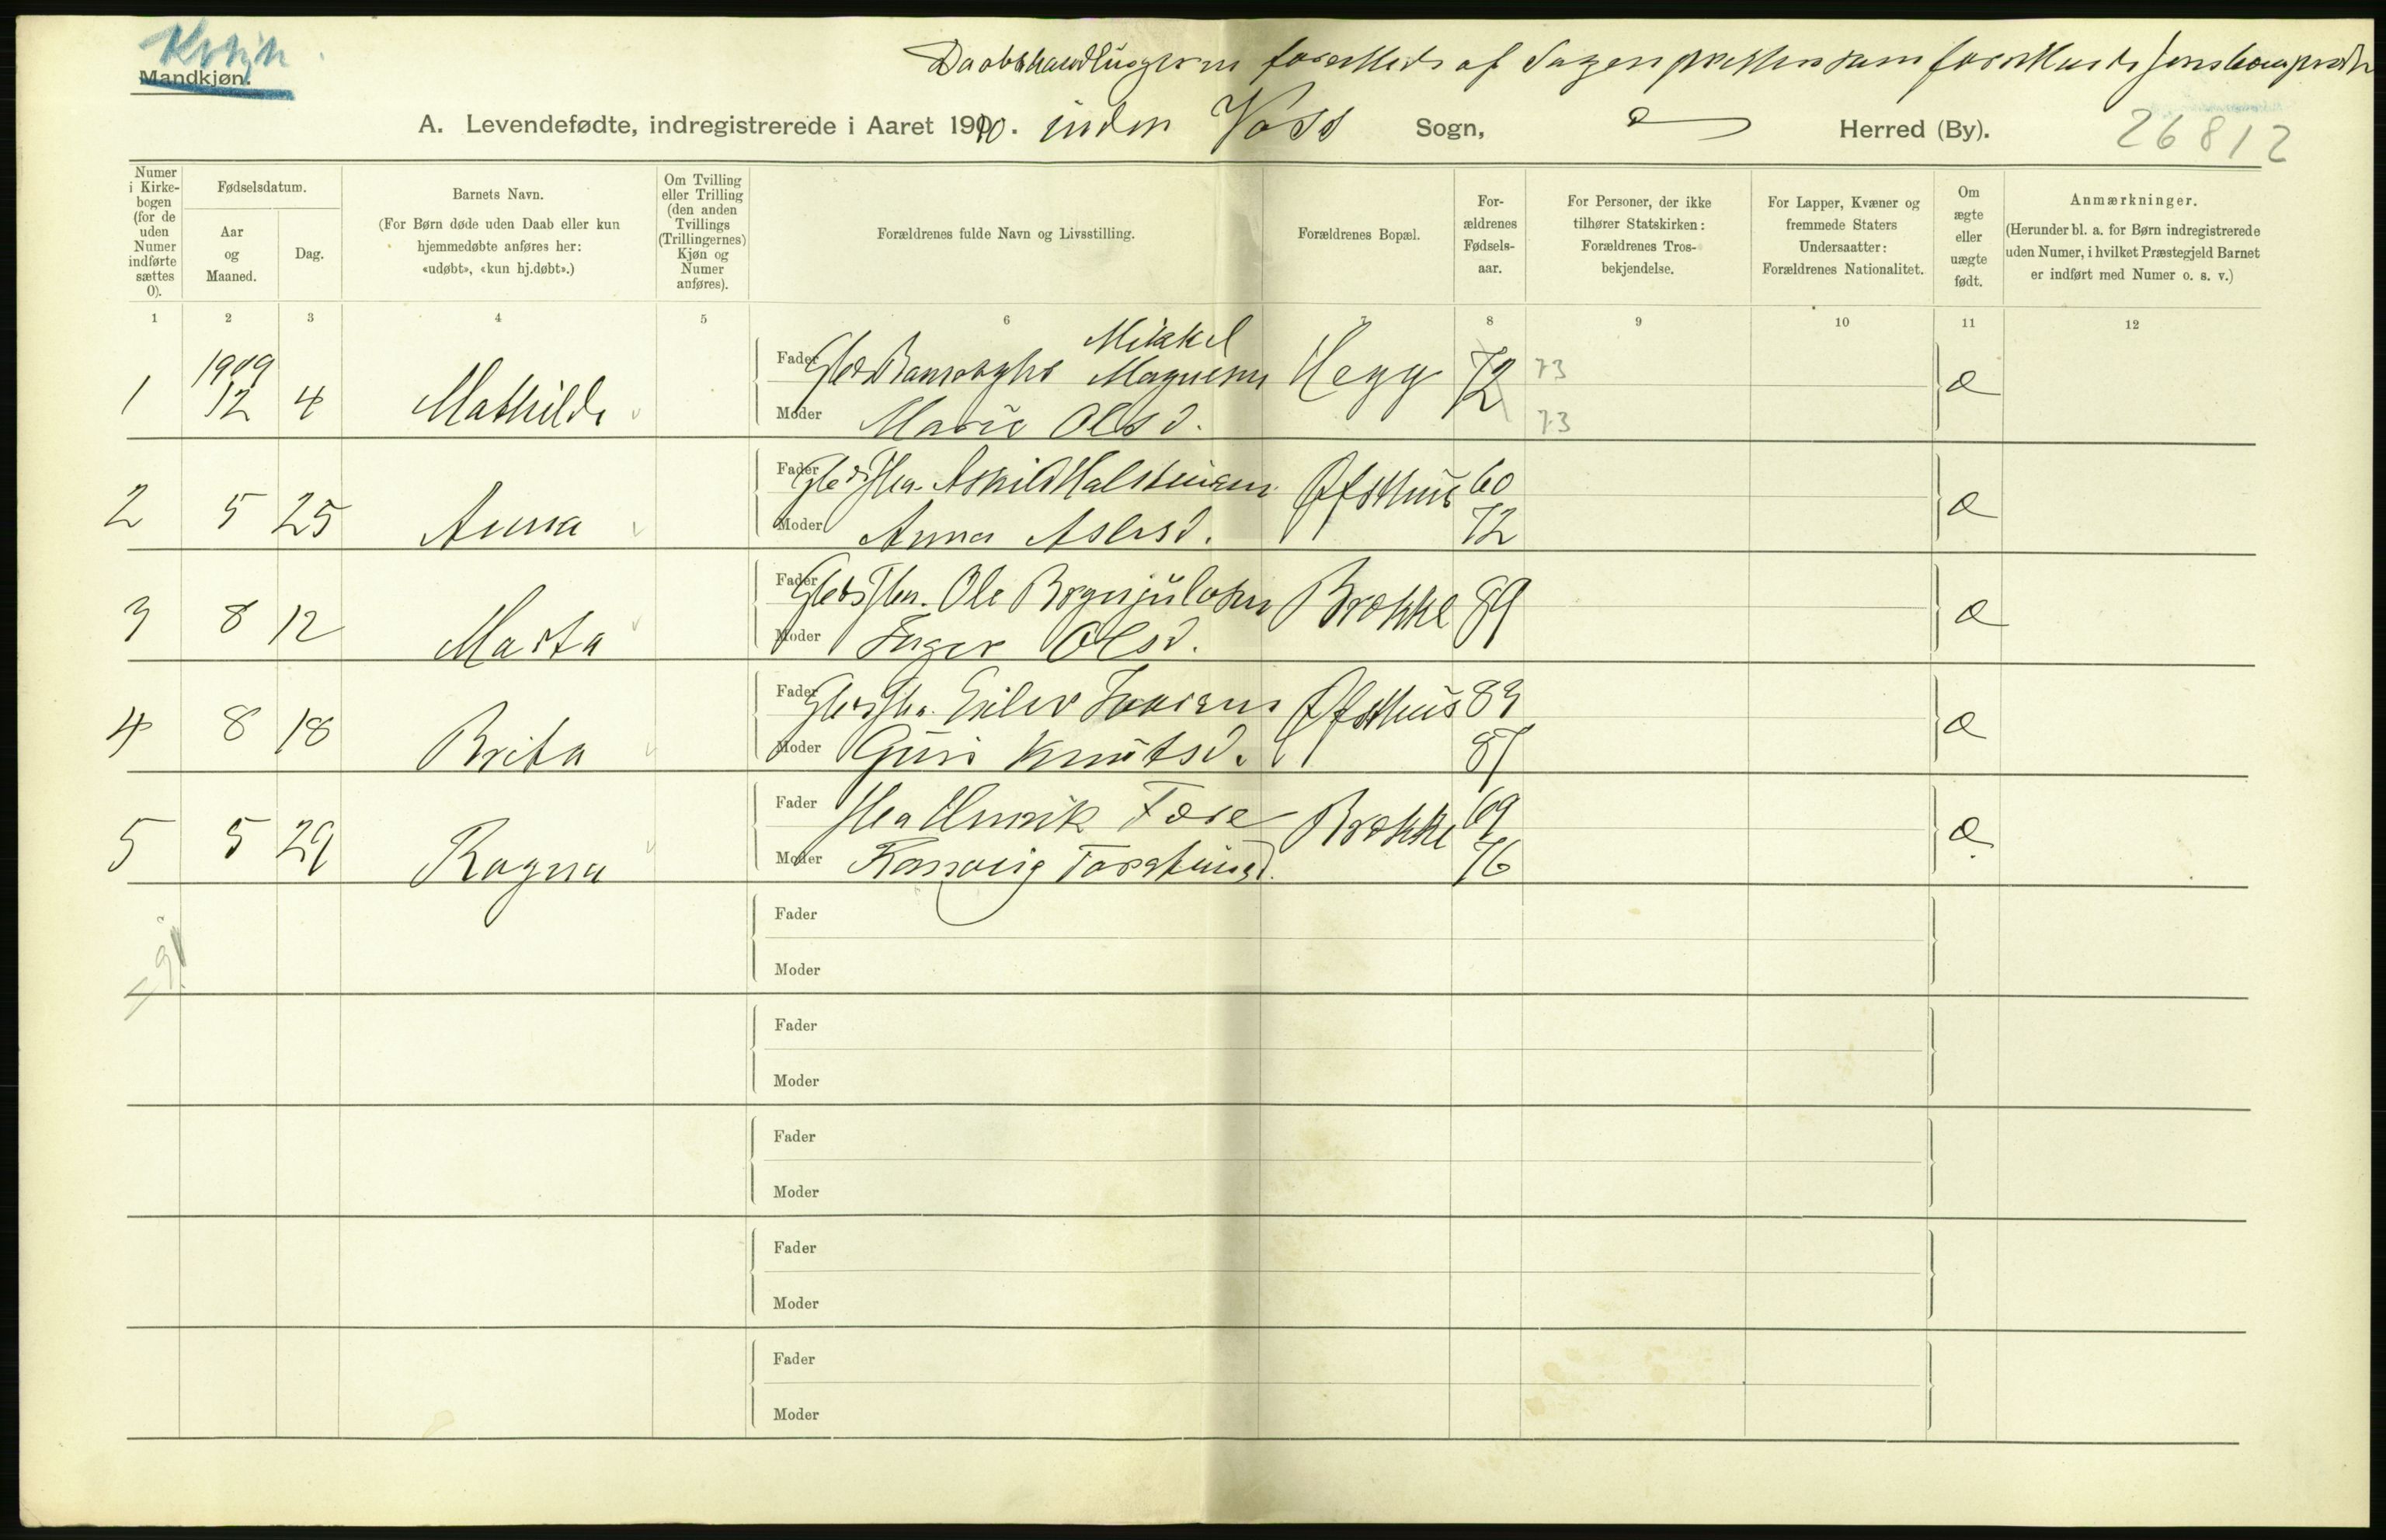 Kvkjn
Mandkjøn.
Daabshandlingerne forrettede af Sognepresten som
A. Levendefødte, indregistrerede i Aaret 1910. inden Voss Sogn, Herred (By).
26812
Numer i Kirke-bogen (for de uden Numer indførte sættes 0).
Fødselsdatum.
Aar og Maaned.
Dag.
Barnets Navn.
(For Børn døde uden Daab eller kun hjemmedøbte anføres her: «udøbt», «kun hj.døbt».)
Om Tvilling eller Trilling (den anden Tvillings (Trillingernes) Kjøn og Numer anføres).
Forældrenes fulde Navn og Livsstilling.
Forældrenes Bopæl.
For-ældrenes Fødsels-aar.
For Personer, der ikke tilhører Statskirken: Forældrenes Tros-bekjendelse.
For Lapper, Kvæner og fremmede Staters Undersaatter: Forældrenes Nationalitet.
Om ægte eller uægte født.
Anmærkninger.
(Herunder bl. a. for Børn indregistrerede uden Numer, i hvilket Præstegjeld Barnet er indført med Numer o. s. v.)
1 2 3 4 5 6 7 8 9 10 11 12
1 1909 12 4 Mathilde Fader Mikkel Magnesen Hegg 72 73 æ
Moder Marie Olsd. 73
2 5 25 Anna Fader Askild Halsteinsen Øfsthus 60 æ
Moder Anna Aslesd. 72
3 8 12 Marta Fader Ole Brynjulvsen Brække 89 æ
Moder Inger Olsd.
4 8 18 Brita Fader Eilev Ivarsen Øfsthus 83 æ
Moder Guri Knutsd. 87
5 5 29 Ragna Fader Henrik Fære Brække 69 æ
Moder Rannveig Torsteinsd. 76
Fader
Moder
Fader
Moder
Fader
Moder
Fader
Moder
Fader
Moder